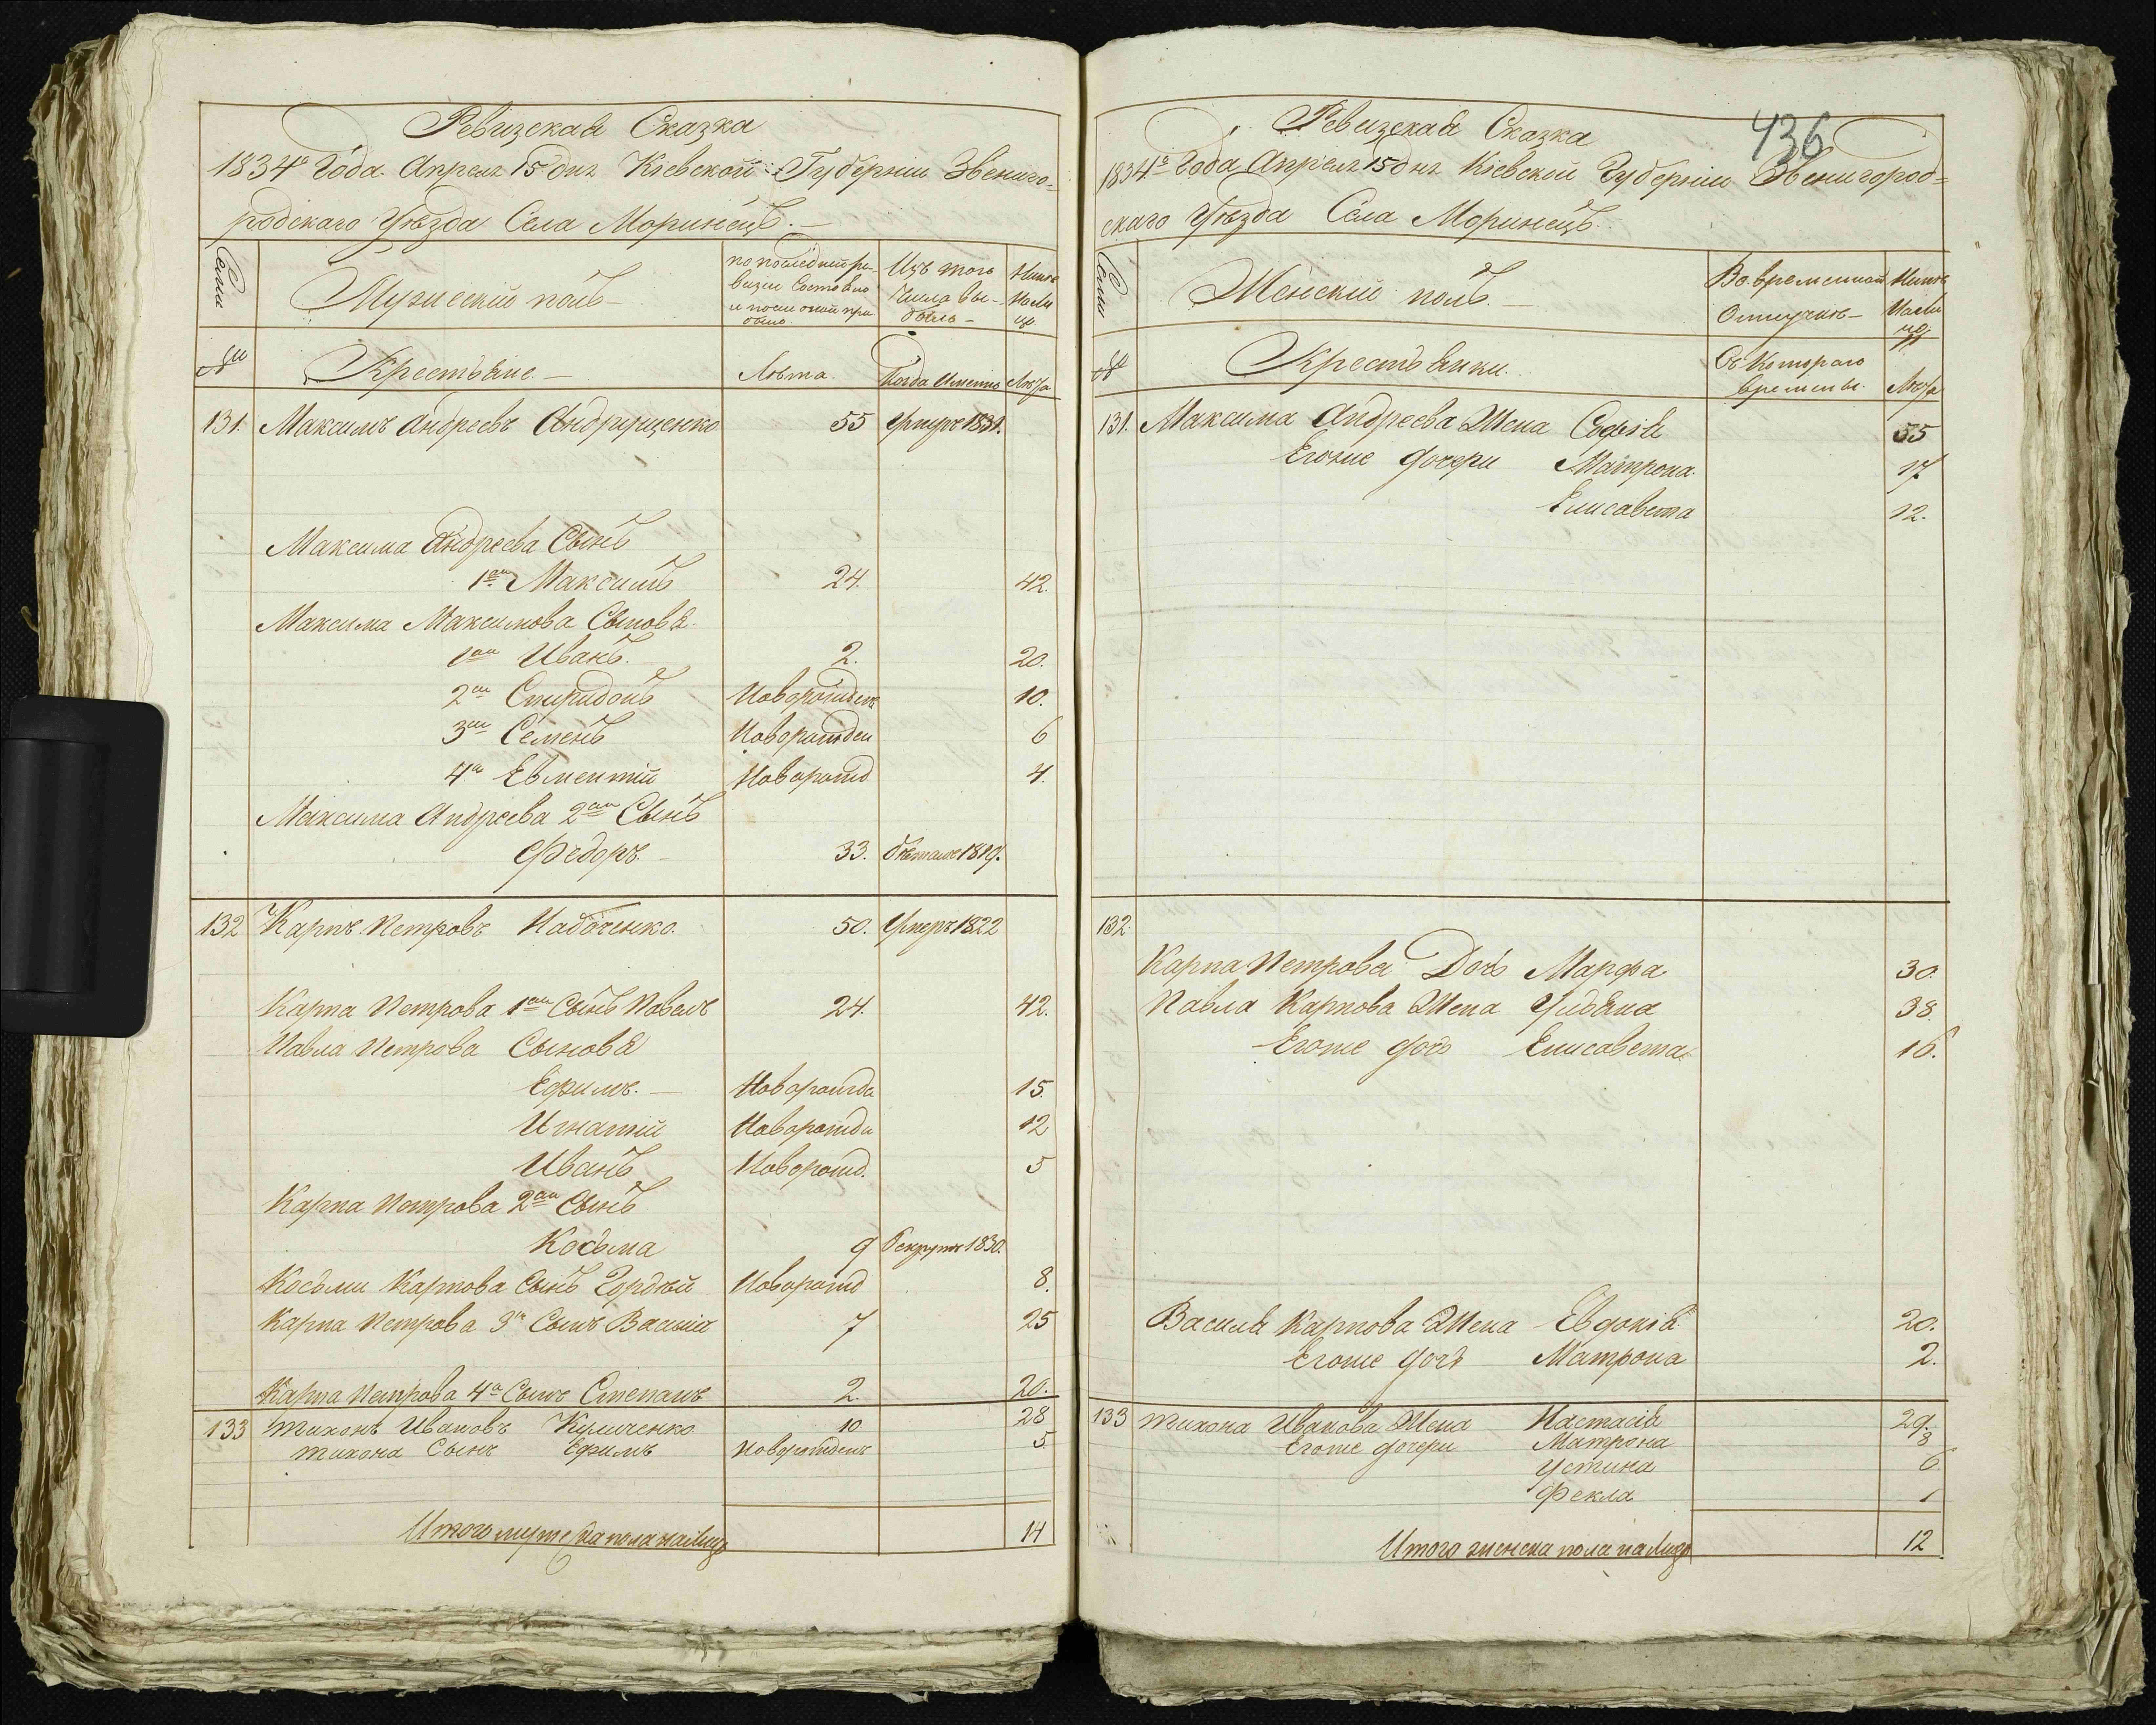 Ревизская Сказка
1834го Года Апреля 15 дня Кіевской Губерніи Звениго=
родскаго Уѣзда Села Моринецъ.
Семьи
Мужескій полъ
по последней ре-
визіи состояло
и после оной при
было.
Изъ того
числа вы-
было
Ныне
на ли
цо.
№
Крестьяне.
Лѣта.
Когда именно
Лѣта
131. Максимъ Андреевъ Андрущенко 55 Умеръ 1831.
Максима Андреева Сынъ
1ый Максимъ 24. 42.
Максима Максимова Сыновя.
1ый Иванъ. 2. 20.
2й Спиридонъ Новорожденъ 10.
3й Семенъ Новорожден 6
4й Евментій Новорожд 4.
Максима Андреева 2ый Сынъ
Федоръ. 33. бѣжалъ 1819.
132 Карпъ Петровъ Набоченко. 50. Умеръ 1822
Карпа Петрова 1ый Сынъ Павелъ 24. 42.
Павла Петрова Сыновя
Ефимъ. Новорожде 15.
Игнатій Новорожде 12
Иванъ Новорожд. 5
Карпа Петрова 2ый Сынъ
Косьма 9 Рекрутъ 1830.
Косьми Карпова Сынъ Гордѣй Новорожд 8.
Карпа Петрова 3й Сынъ Василій 7 25
Карпа Петрова 4й Сынъ Степанъ 2. 20.
133 Тихонъ Ивановъ 10 28
Тихона Сынъ Ефимъ Новорожденъ 5
Итого мужеска пола на Лицо 14
436
Ревизская Сказка
1834го Года Апреля 15 дня Кіевской Губерніи Звенигород=
скаго Уѣзда Села Моринецъ.
Семьи
Женский полъ.
Во временной
Отлучкѣ
Ныне
на ли
цо
№
Крестьянки.
Съ котораго
времены.
Лѣта
131. Максима Андреева Жена Софія 55
Егоже дочери Матрона. 17
Елисавета 12.
132.
Карпа Петрова Дочь Марфа 30.
Павла Карпова Жена Улияна 38.
Егоже дочь Елисавета 16.
Василя Карпова Жена Евдокія 20.
Егоже дочь Матрона 2.
133 Тихона Иванова Жена Настасія 29.
Егоже дочери Матрона 8
Устина 6.
Фекла 1
Итого женска пола на Лицо 12